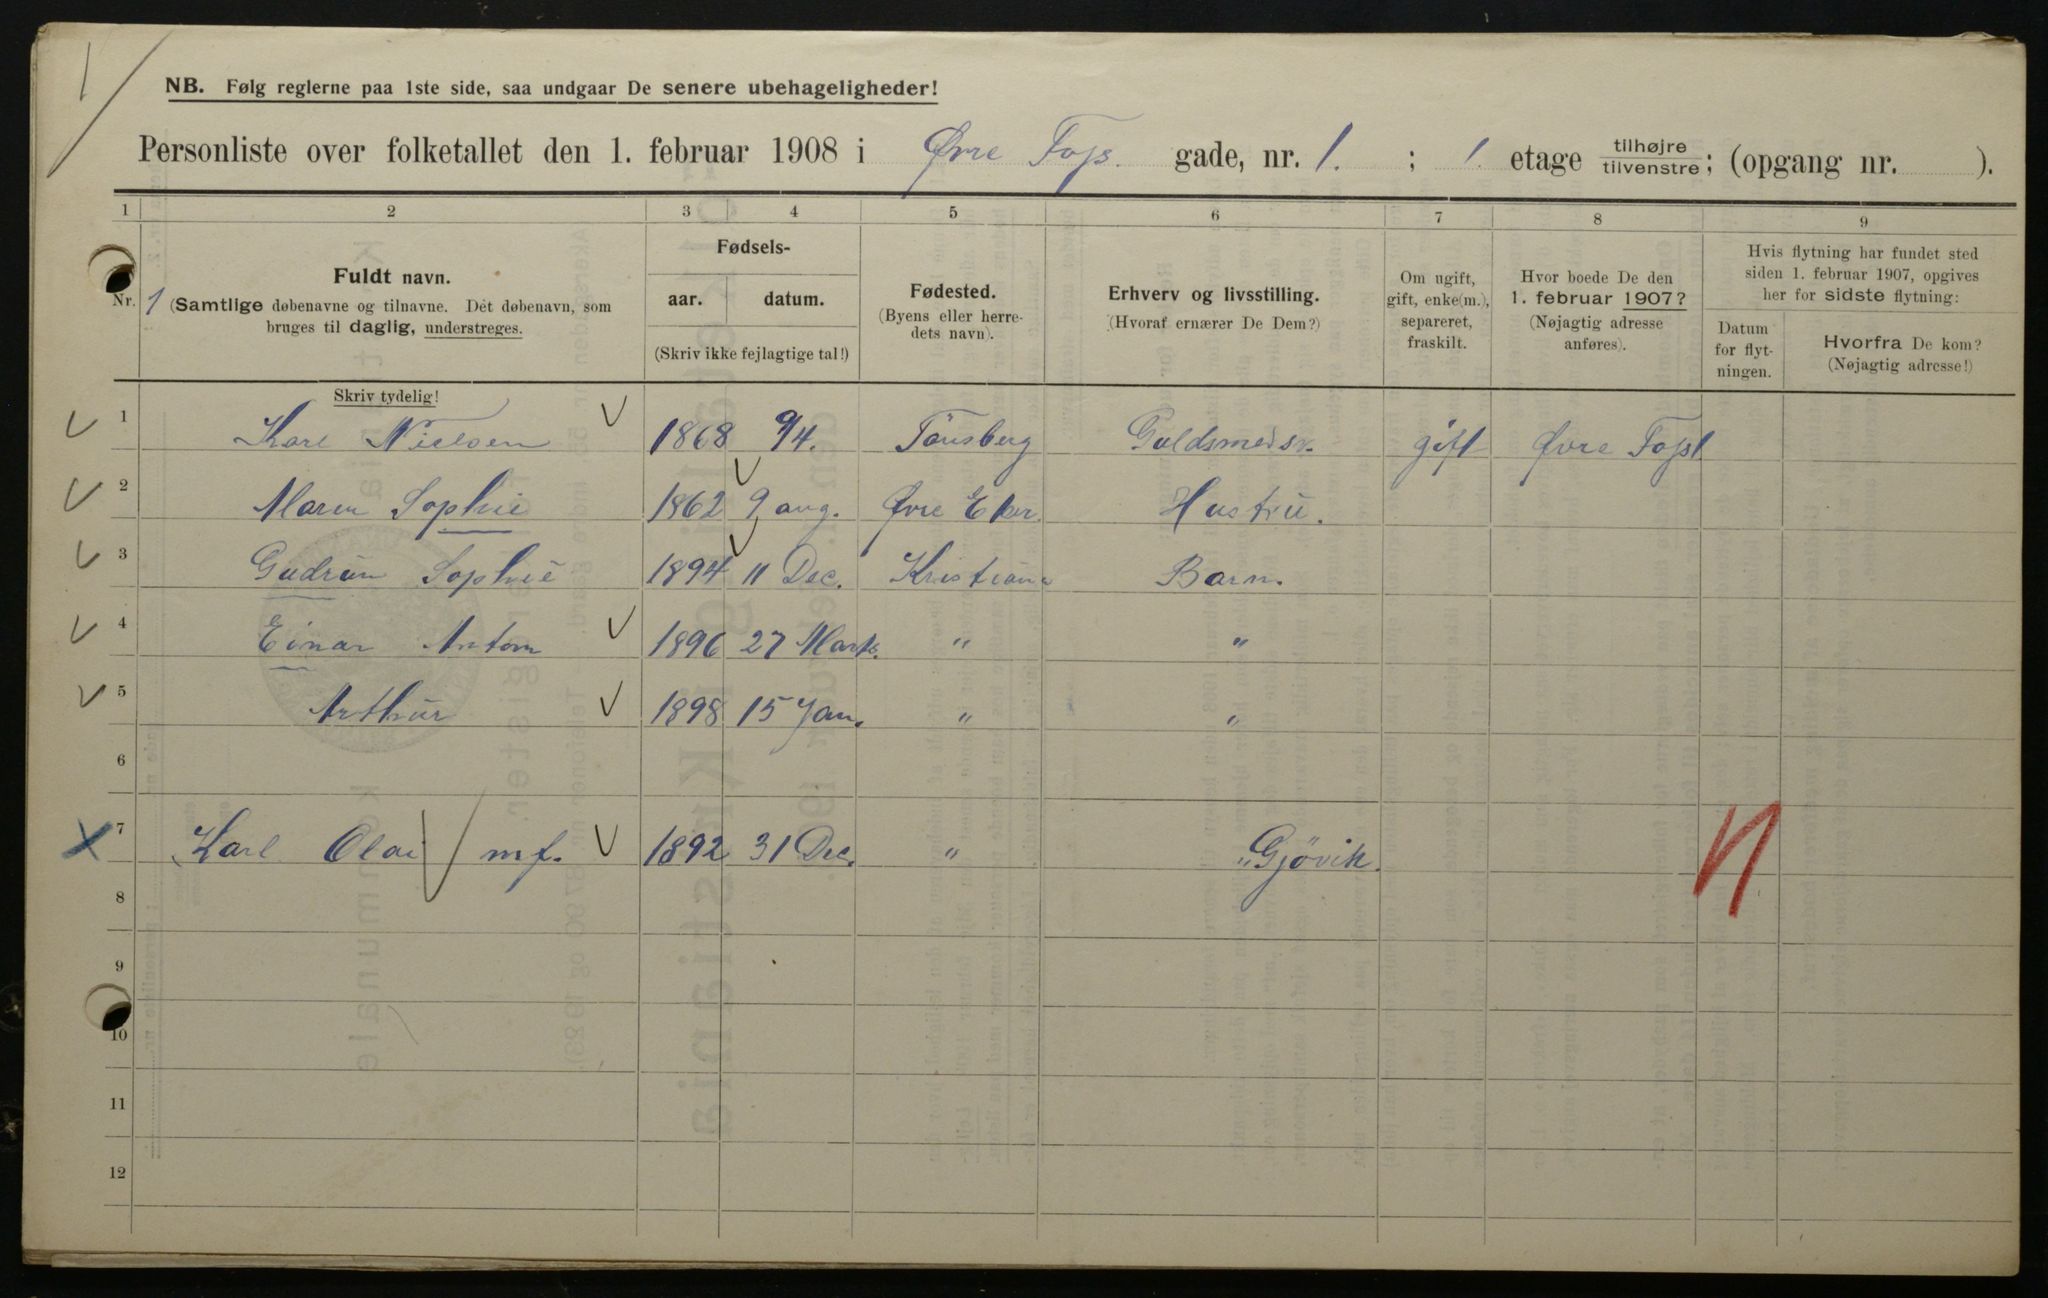 NB. Følg reglerne paa 1ste side, saa undgaar De senere ubehageligheder!
Personliste over folketallet den 1. februar 1908 i Øvre Fos. gade, nr. 1. ; 1. etage tilhøjre/tilvenstre; (opgang nr. ).
1 2 3 4 5 6 7 8 9
Nr. 1
Fuldt navn.
(Samtlige døbenavne og tilnavne. Det døbenavn, som
bruges til daglig, understreges.
Skriv tydelig!
Fødsels-
aar. datum.
(Skriv ikke fejlagtige tal!)
Fødested.
(Byens eller herre-
dets navn).
Erhverv og livsstilling.
(Hvoraf ernærer De Dem?)
Om ugift,
gift, enke(m.),
separeret,
fraskilt.
Hvor boede De den
1. februar 1907?
(Nøjagtig adresse
anføres).
Hvis flytning har fundet sted
siden 1. februar 1907, opgives
her for sidste flytning:
Datum
for flyt-
ningen.
Hvorfra De kom?
(Nøjagtig adresse!)
1 Karl Nielsen 1868 9/4. Tönsberg Guldsmedsv. gift Øvre Fos 1
2 Maren Sophie 1862 9 aug. Øvre Eker. Hustru.
3 Gudrun Sophie 1894 11 Dec. Kristiania Barn.
4 Einar Anton 1896 27 Marts. " "
5 Arthur 1898 15 Jan. " "
6
7 Karl Olai mf. 1892 31 Dec. " " Gjövik.
8
9
10
11
12